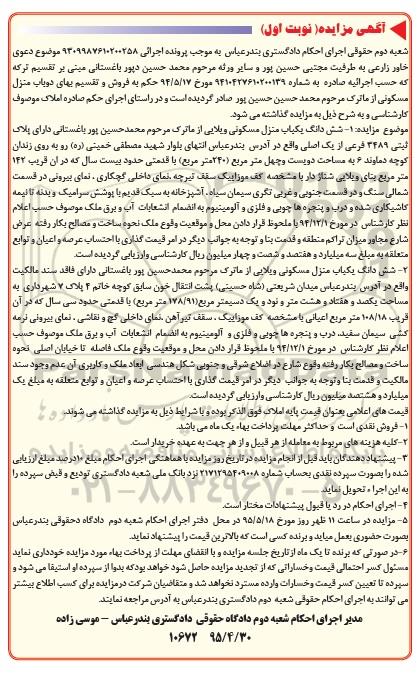 آگهی مزایده( نوبت اول)
شعبه دوم حقوقی اجرای احکام دادگستری بندرعباس به موجب پرونده اجرائی ۹۳۰۹۹۸۷۶۱۰۲۰۰۲۵۸ موضوع دعوی
خاور زارعی به طرفیت مجتبی حسین پور و سایر ورثه مرحوم محمد حسین دپور باغستانی مبنی بر تقسیم ترکه
که حسب اجرائیه صادره به شماره ۹۴۱۰۴۲۷۶۱۰۲۰۰۱۳۹ مورخ ۹۴/۵/۱۷ حکم به فروش و تقسیم بهای دوباب منزل
مسکونی از ماترک مرحوم محمد حسین حسین پور صادر گردیده است و در راستای اجرای حکم صادره املاک موصوف
کارشناسی و به شرح ذیل به مزایده گذاشته می شود.
موضوع مزایده: ۱- شش دانگ یکباب منزل مسکونی ویلایی از ماترک مرحوم محمدحسین پور باغستانی دارای پلاک
ثبتی ۳۴۸۹ فرعی از یک اصلی واقع در آدرس بندرعباس انتهای بلوار شهید مصطفی خمینی (ره) رو به روی زندان
کوچه دماوند ۶ به مساحت دویست وچهل متر مربع (۲۴۰متر مربع) با قدمتی حدود بیست سال که در آن قریب ۱۴۲
متر مربع بنای ویلایی شناژ دار با مشخصه کف موزاییک سقف تیرچه ،نمای داخلی گچکاری ، نمای بیرونی در قسمت
شمالی سنگ و در قسمت جنوبی و غربی تگری سیمان سیاه . آشپزخانه به سبک قدیم با پوشش سرامیک و بدنه تا نیمه
کاشیکاری شده و درب و پنجره ها چوبی و فلزی و آلومینیوم به انضمام انشعابات آب و برق ملک موصوف حسب اعلام
نظر کارشناس در مورخ ۹۴/۱۲/۱ با ملحوظ قرار دادن محل و موقعیت وقوع ملک نحوه ساخت و مصالح بکار رفته عرض
شارع مجاور میزان تراکم منطقه و قدمت بنا و توجه به جوانب دیگر در امر قیمت گذاری با احتساب عرصه و اعیان و توابع
متعلقه به مبلغ سه میلیارد و هفتصد و شصت و چهار میلیون ریال کارشناسی وارزیابی گردیده است.
۲- شش دانگ یکباب منزل مسکونی ویلایی از ماترک مرحوم محمدحسین پور باغستانی دارای فاقد سند مالکیت
واقع در آدرس بندرعباس میدان شریعتی (شاه حسینی) پشت انتقال خون سابق کوچه خاتم ۴ پلاک ۷ شهرداری به
مساحت یکصد و هفتاد و هشت متر و نود و یک دسیمتر مربع(۱۷۸/۹۱ متر مربع) با قدمتی حدود سی سال که در آن
قریب ۱۰۸/۱۸ متر مربع اعیانی با مشخصه کف موزاییک ، سقف تیر آهن ،نمای داخلی گچ و نقاشی ، نمای بیرونی نرمه
کشی سیمان سفید، درب و پنجره ها چوبی و فلزی و آلومینیوم به انضمام انشعابات آب و برق ملک موصوف حسب
اعلام نظر کارشناس در مورخ ۹۴/۱۲/۱ با ملحوظ قرار دادن محل و موقعیت وقوع ملک فاصله تا خیابان اصلی نحوه
ساخت و مصالح بکار رفته وقوع شارع در اضلاع شرقی و جنوبی شکل هندسی ابعاد ملک و کاربری آن عدم وجود سند
مالکیت و قدمت بنا وتوجه به جوانب دیگر در امر قیمت گذاری با احتساب عرصه و اعیان و توابع متعلقه به مبلغ یک
میلیارد و هشتصد میلیون ریال کارشناسی وارزیابی گردیده است.
قیمت های اعلامی بعنوان قیمت پایه املاک فوق الذکر بوده و با شرایط ذیل به مزایده گذاشته می شوند.
۱- فروش نقدی است و حداکثر مهلت پرداخت بهاء یک ماه می باشد.
۲-کلیه هزینه های مربوط به معامله از هر قبیل و از هر جهت به عهده خریدار است.
۳- پیشنهاد دهندگان باید قبل از انجام مزایده در تاریخ روز مزایده با هماهنگی اجرای احکام مبلغ ۱۰درصد مبلغ ارزیابی
شده را بصورت سپرده نقدی بحساب شماره ۲۱۷۱۲۹۵۴۰۹۰۰۸ نزد بانک ملی شعبه دادگستری تودیع و قبض سپرده را
به این اجراء تحویل نماید.
۴-اجرای احکام در رد یا قبول پیشنهادات مختار است.
۵-مزایده در ساعت ۱۱ ظهر روز مورخ ۹۵/۵/۱۸ در محل دفتر اجرای احکام شعبه دوم دادگاه دحقوقی بندرعباس
بصورت حضوری بعمل میاید و برنده کسی است که بالاترین قیمت را پیشنهاد نماید.
۶-در صورتی که برنده تا یک ماه از تاریخ جلسه مزایده و با انقضای مهلت از پرداخت بهاء مورد مزایده خودداری نماید
مسئول کسر احتمالی قیمت وخساراتی که از تجدید مزایده حاصل شود خواهد بودکه بدوا از سپرده او استیفا می شود و
سپرده تا تعیین کسر قیمت وخسارات وارده مسترد نخواهد شد و متقاضیان شرکت درمزایده برای کسب اطلاع بیشتر
می توانند به اجرای احکام حقوقی شعبه دوم دادگستری بندرعباس به آدرس مراجعه نمایند.
مدیر اجرای احکام شعبه دوم دادگاه حقوقی دادگستری بندرعباس – موسی زاده
۹۵/۴/۳۰ ۱۰۶۷۲